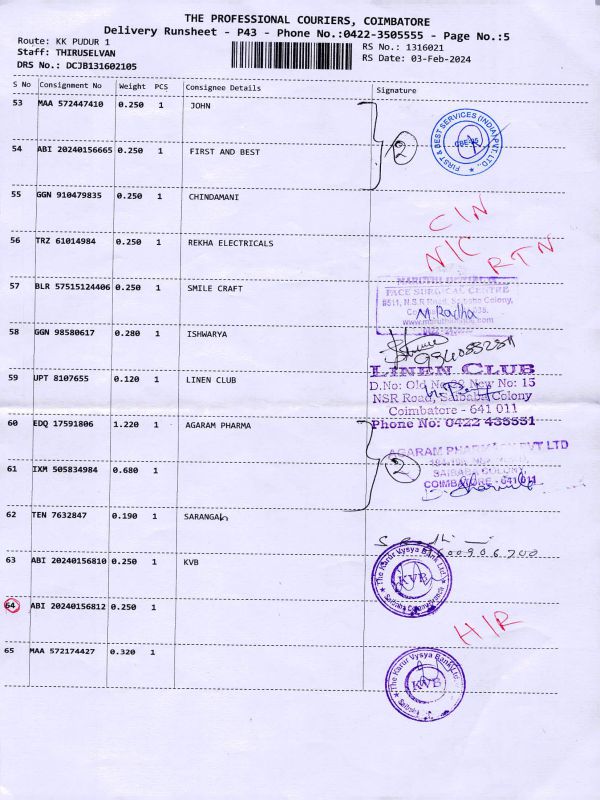 THE PROFESSIONAL COURIERS, COIMBATORE
Delivery Runsheet - P43 - Phone No.:0422-3505555 - Page No.:5
Route: KK PUDUR 1
RS No.: 1316021
Staff: THIRUSELVAN
RS Date: 03-Feb-2024
DRS No.: DCJB131602105
S No Consignment No Weight PCS Consignee Details Signature
53 MAA 572447410 0.250 1 JOHN
FIRST & BEST SERVICES (INDIA) PVT. LTD.
2
54 ABI 20240156665 0.250 1 FIRST AND BEST
55 GGN 910479835 0.250 1 CHINDAMANI
C/N
56 TRZ 61014984 0.250 1 REKHA ELECTRICALS
N/C RTN
57 BLR 57515124406 0.250 1 SMILE CRAFT
FACE SURGICAL CENTRE
N.S.R Road, Saibaba Colony,
M. Radha
58 GGN 98580617 0.280 1 ISHWARYA
59 UPT 8107655 0.120 1 LINEN CLUB
LINEN CLUB
D.No: Old No New No: 15
NSR Road, Saibaba Colony
Coimbatore - 641 011
Phone No: 0422
60 EDQ 17591806 1.220 1 AGARAM PHARMA
AGARAM PHARMACY PVT LTD
2
SAIBABA COLONY,
COIMBATORE - 641 011
61 IXM 505834984 0.680 1
62 TEN 7632847 0.190 1 SARANGAN
63 ABI 20240156810 0.250 1 KVB
The Karur Vysya Bank Ltd.
KVB
Saibaba Colony Branch
64 ABI 20240156812 0.250 1
H/R
65 MAA 572174427 0.320 1
The Karur Vysya Bank Ltd.
KVB
Saibaba